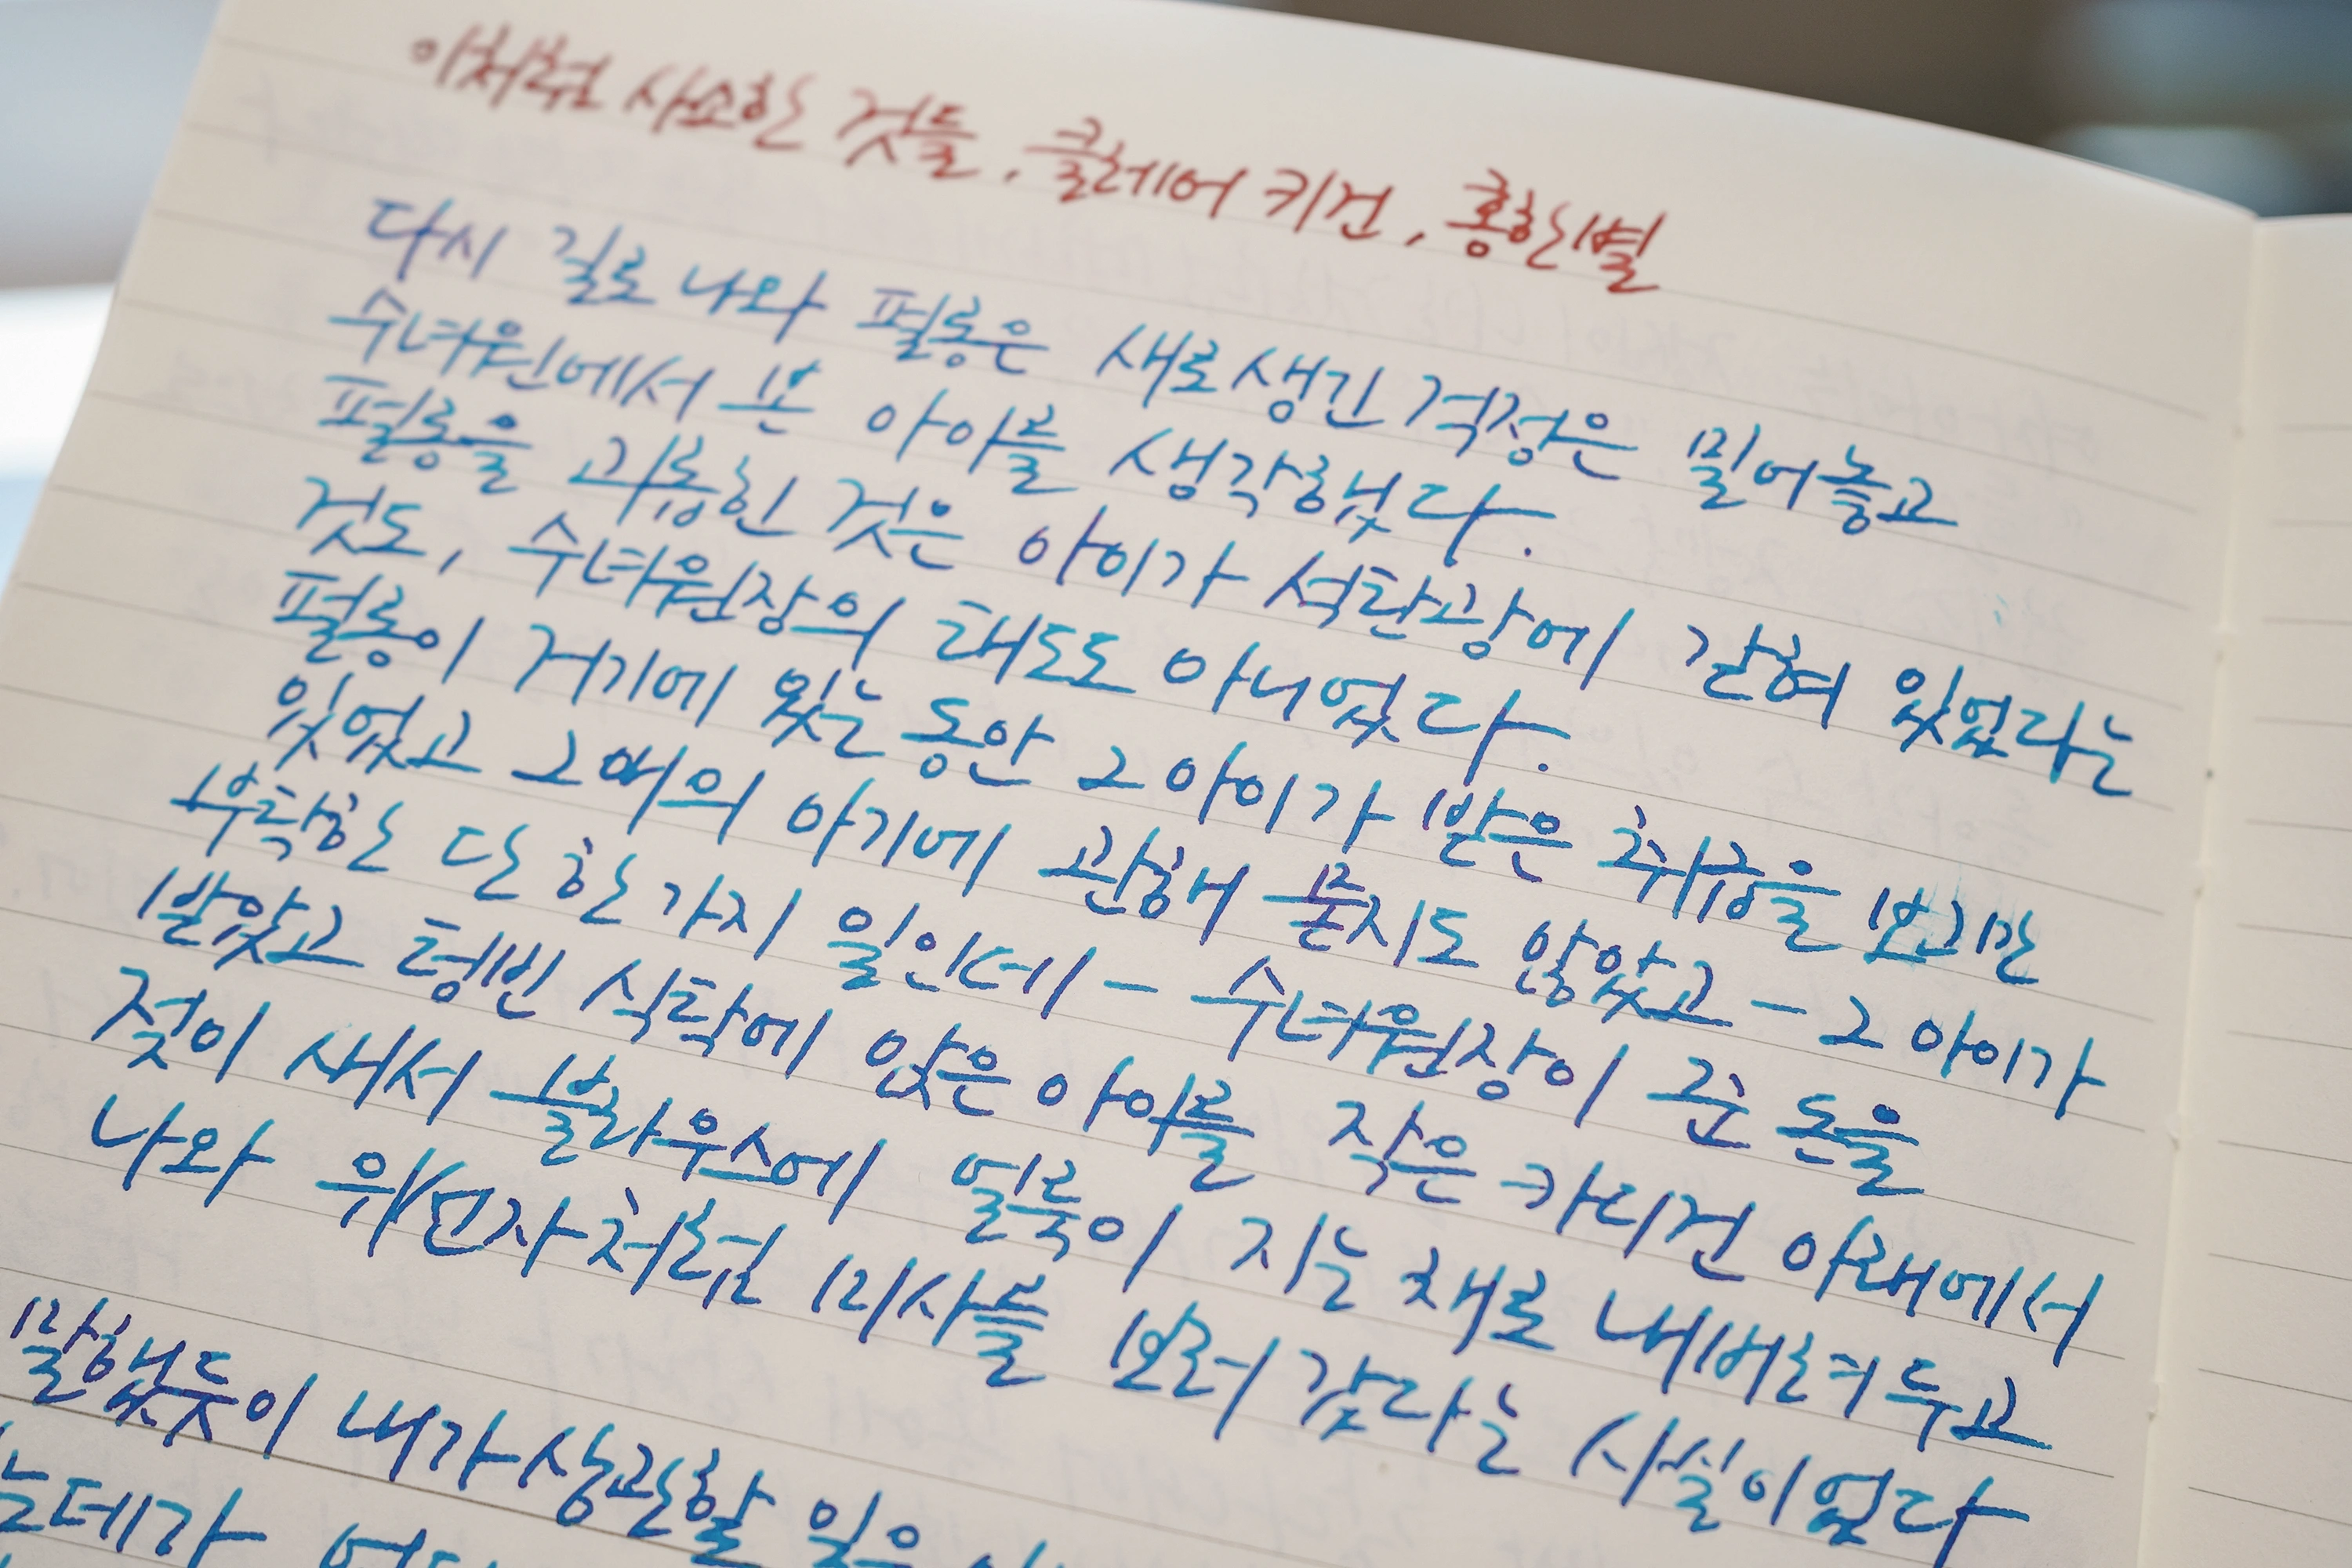 이처럼 사소한 것들, 클레어 키건, 홍한별
다시 길로 나와 펄롱은 새로 생긴 걱정은 밀어놓고
수녀원에서 본 아이를 생각했다.
펄롱을 괴롭힌 것은 아이가 석탄광에 갇혀 있었다는
것도, 수녀원장의 태도도 아니었다.
펄롱이 거기에 있는 동안 그 아이가 받은 취급을 보고만
있었고 그애의 아기에 관해 묻지도 않았고 – 그 아이가
부탁한 단 한 가지 일인데 – 수녀원장이 준 돈을
받았고 텅 빈 식탁에 앉은 아이를 작은 카디건 아래에서
젖이 새서 블라우스에 얼룩이 지는 채로 내버려두고
나와 위선자처럼 미사를 보러 갔다는 사실이었다
말했듯이 내가 상관할 일은
는데가